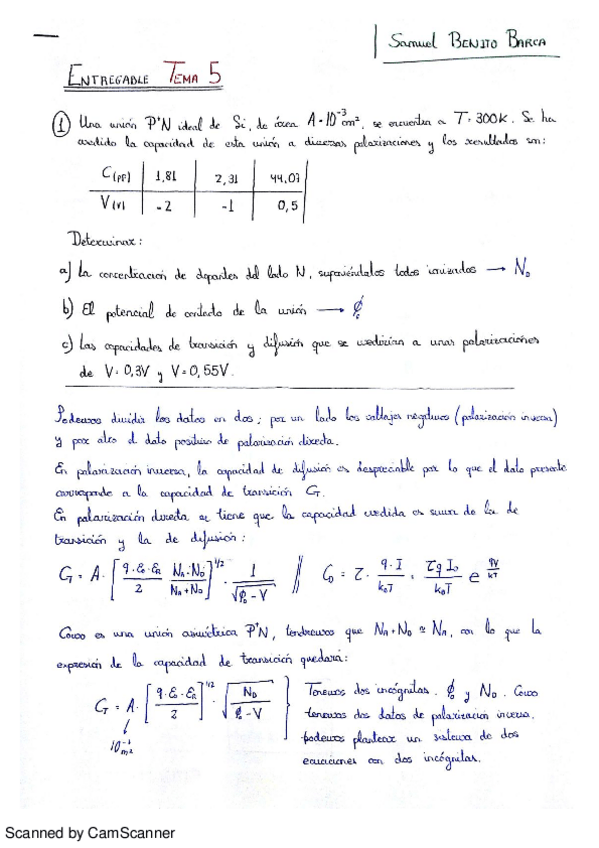 Samuel BENITO BARCA
ENTREGABLE TEMA 5
① Una unión P⁺N ideal de Si, de área A = 10⁻³ cm², se encuentra a T = 300K. Se ha
medido la capacidad de esta unión a diversas polarizaciones y los resultados son:
C(pF) | 1,81 | 2,31 | 44,07
V(V) | -2 | -1 | 0,5
Determinar:
a) La concentración de donantes del lado N, suponiéndolos todos ionizados → N_D
b) El potencial de contacto de la unión → ϕ₀
c) Las capacidades de transición y difusión que se medirían a unas polarizaciones
de V = 0,3V y V = 0,55V.
Podemos dividir los datos en dos; por un lado los voltajes negativos (polarización inversa)
y por otro el dato positivo de polarización directa.
En polarización inversa, la capacidad de difusión es despreciable por lo que el dato presente
corresponde a la capacidad de transición C_T.
En polarización directa, se tiene que la capacidad medida es suma de la de
transición y la de difusión:
C_T = A · [q·ε₀·ε_R / 2 · N_A·N_D / (N_A+N_D)]^(1/2) · 1 / √(ϕ₀ - V) // C_D = τ · q·I / (k_0T) = τ q I₀ / (k_0T) e^(qV/kT)
Como es una unión asimétrica P⁺N, tendremos que N_A+N_D ≈ N_A, con lo que la
expresión de la capacidad de transición quedará:
C_T = A · [q·ε₀·ε_R / 2]^(1/2) · √(N_D / (ϕ₀ - V))
Tenemos dos incógnitas. ϕ₀ y N_D. Como
tenemos dos datos de polarización inversa,
podemos plantear un sistema de dos
ecuaciones con dos incógnitas.
Scanned by CamScanner